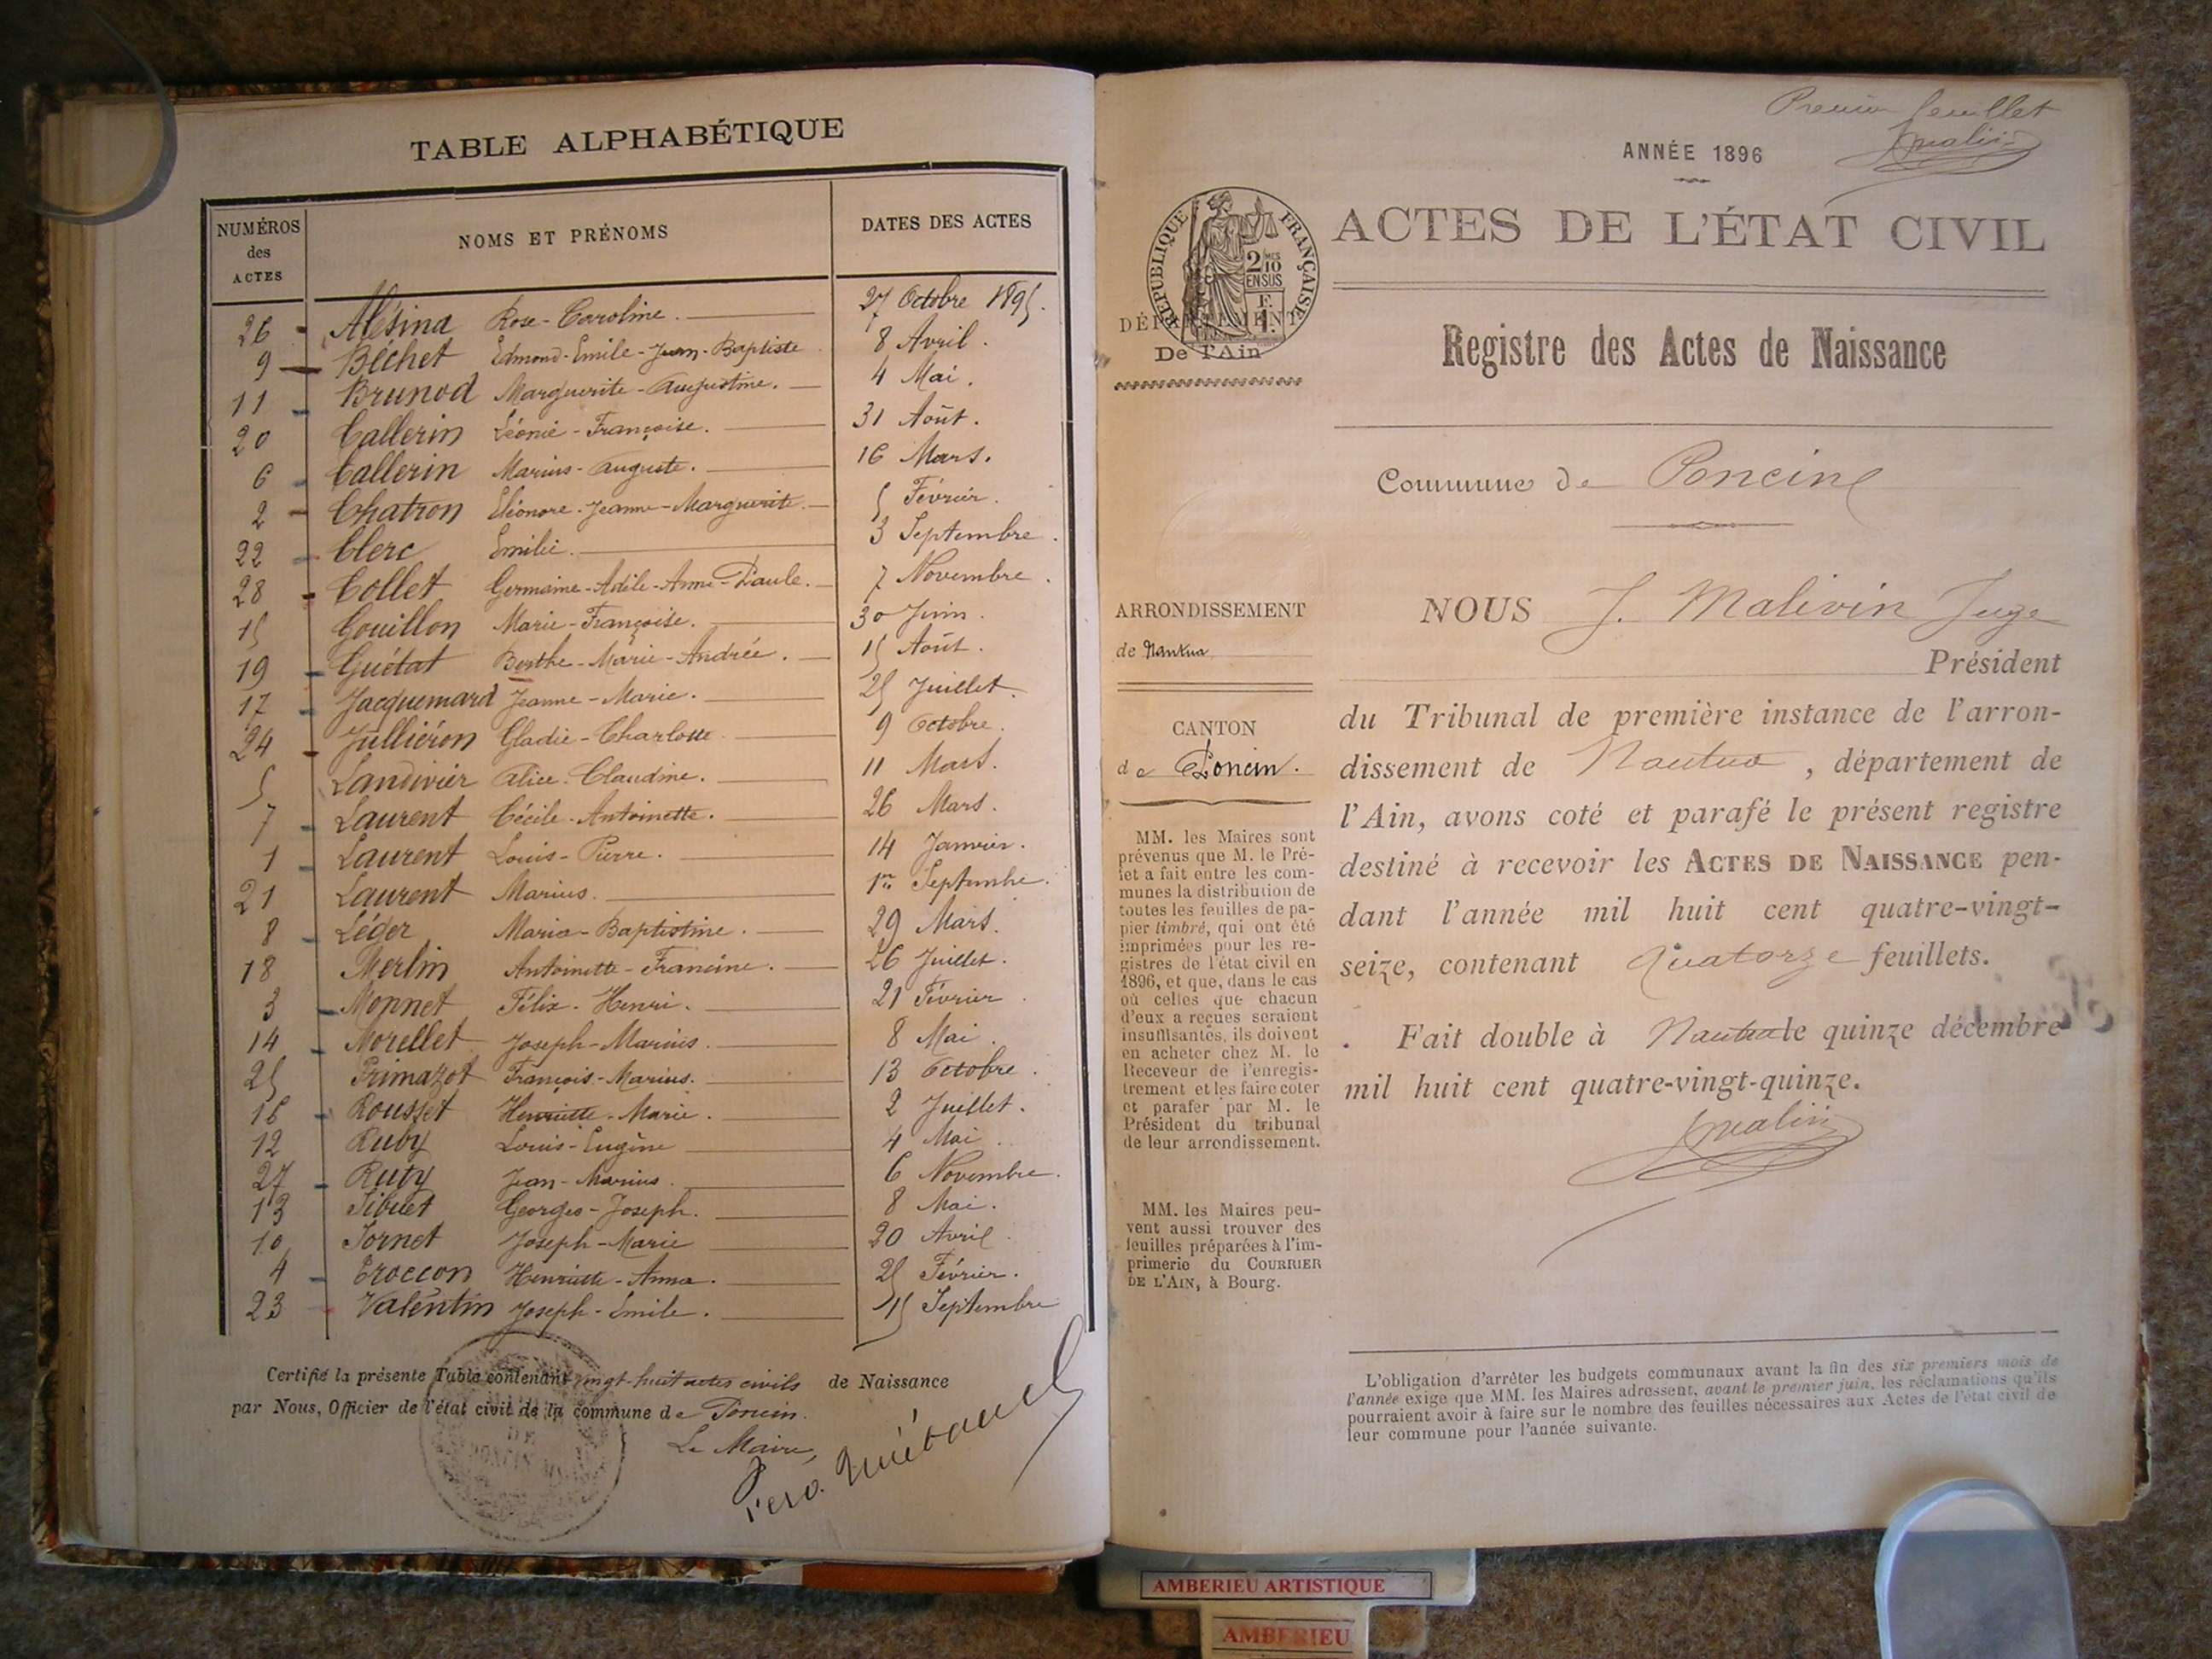 TABLE ALPHABÉTIQUE
NUMÉROS des ACTES NOMS ET PRÉNOMS DATES DES ACTES
26 Alésina Rose-Caroline. 27 Octobre 1895.
9 Béchet Edmond-Emile-Jean-Baptiste 8 Avril.
11 Brunod Marguerite-Augustine. 4 Mai.
20 Callerin Léonie-Françoise. 31 Août.
6 Callerin Marius-Auguste. 16 Mars.
2 Chatron Eléonore-Jeanne-Marguerite. 5 Février.
22 Clerc Emilie. 3 Septembre.
28 Collet Germaine-Adèle-Anne-Paule. 7 Novembre.
15 Gouillon Marie-Françoise. 30 Juin.
19 Guétat Berthe-Marie-Andrée. 15 Août.
17 Jacquemard Jeanne-Marie. 25 Juillet.
24 Jülliéron Gladie-Charlotte 9 Octobre.
5 Landivier Alice-Claudine. 11 Mars.
7 Laurent Cécile-Antoinette. 26 Mars.
1 Laurent Louis-Pierre. 14 Janvier.
21 Laurent Marius. 1er Septembre.
8 Léger Maria-Baptistine. 29 Mars.
18 Merlin Antoinette-Francine. 26 Juillet.
3 Monnet Félix-Henri. 21 Février.
14 Morellet Joseph-Marius. 8 Mai.
25 Primazot François-Marius. 13 Octobre.
16 Rousset Henriette-Marie. 2 Juillet.
12 Ruby Louis-Eugène 4 Mai.
27 Ruty Jean-Marius. 6 Novembre.
13 Tibuet Georges-Joseph. 8 Mai.
10 Tornet Joseph-Marie 20 Avril.
4 Troccon Henriette-Anna. 25 Février.
23 Valentin Joseph-Emile. 15 Septembre
Certifié la présente Table contenant vingt-huit actes civils de Naissance
par Nous, Officier de l'état civil de la commune de Poncin.
Le Maire,
Premier feuillet
ANNÉE 1896
RÉPUBLIQUE FRANÇAISE
2/10 MES EN SUS
ACTES DE L'ÉTAT CIVIL
DÉPARTEMENT
De l'Ain
Registre des Actes de Naissance
Commune de Poncin
ARRONDISSEMENT
de Nantua
CANTON
de Poncin.
MM. les Maires sont
prévenus que M. le Pré-
fet a fait entre les com-
munes la distribution de
toutes les feuilles de pa-
pier timbré, qui ont été
imprimées pour les re-
gistres de l'état civil en
1896, et que, dans le cas
où celles que chacun
d'eux a reçues seraient
insuffisantes, ils doivent
en acheter chez M. le
Receveur de l'enregis-
trement et les faire coter
et parafer par M. le
Président du tribunal
de leur arrondissement.
MM. les Maires peu-
vent aussi trouver des
feuilles préparées à l'im-
primerie du COURRIER
DE L'AIN, à Bourg.
NOUS J. Malivin Juge
Président
du Tribunal de première instance de l'arron-
dissement de Nantua, département de
l'Ain, avons coté et parafé le présent registre
destiné à recevoir les ACTES DE NAISSANCE pen-
dant l'année mil huit cent quatre-vingt-
seize, contenant Quatorze feuillets.
Fait double à Nantua le quinze décembre
mil huit cent quatre-vingt-quinze.
L'obligation d'arrêter les budgets communaux avant la fin des six premiers mois de
l'année exige que MM. les Maires adressent, avant le premier juin, les réclamations qu'ils
pourraient avoir à faire sur le nombre des feuilles nécessaires aux Actes de l'état civil de
leur commune pour l'année suivante.
AMBERIEU ARTISTIQUE
AMBERIEU